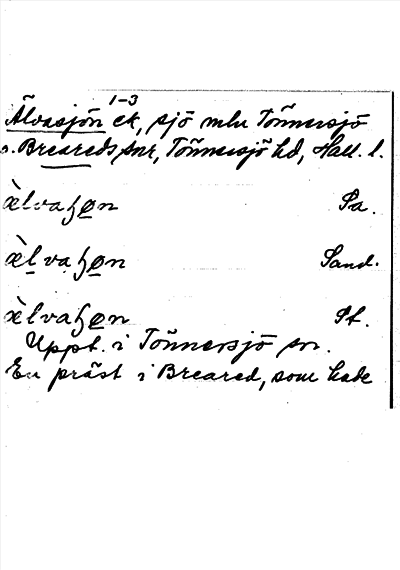 1-3
Älvasjön ek, sjö mln Tönnersjö
o. Breareds snr, Tönnersjö hd, Hall. l.
æ̀lvaɧøn Pa.
æ̀lvaɧøn Sand.
æ̀lvaɧøn St.
Uppt. i Tönnersjö sn.
En präst i Breared, som hade